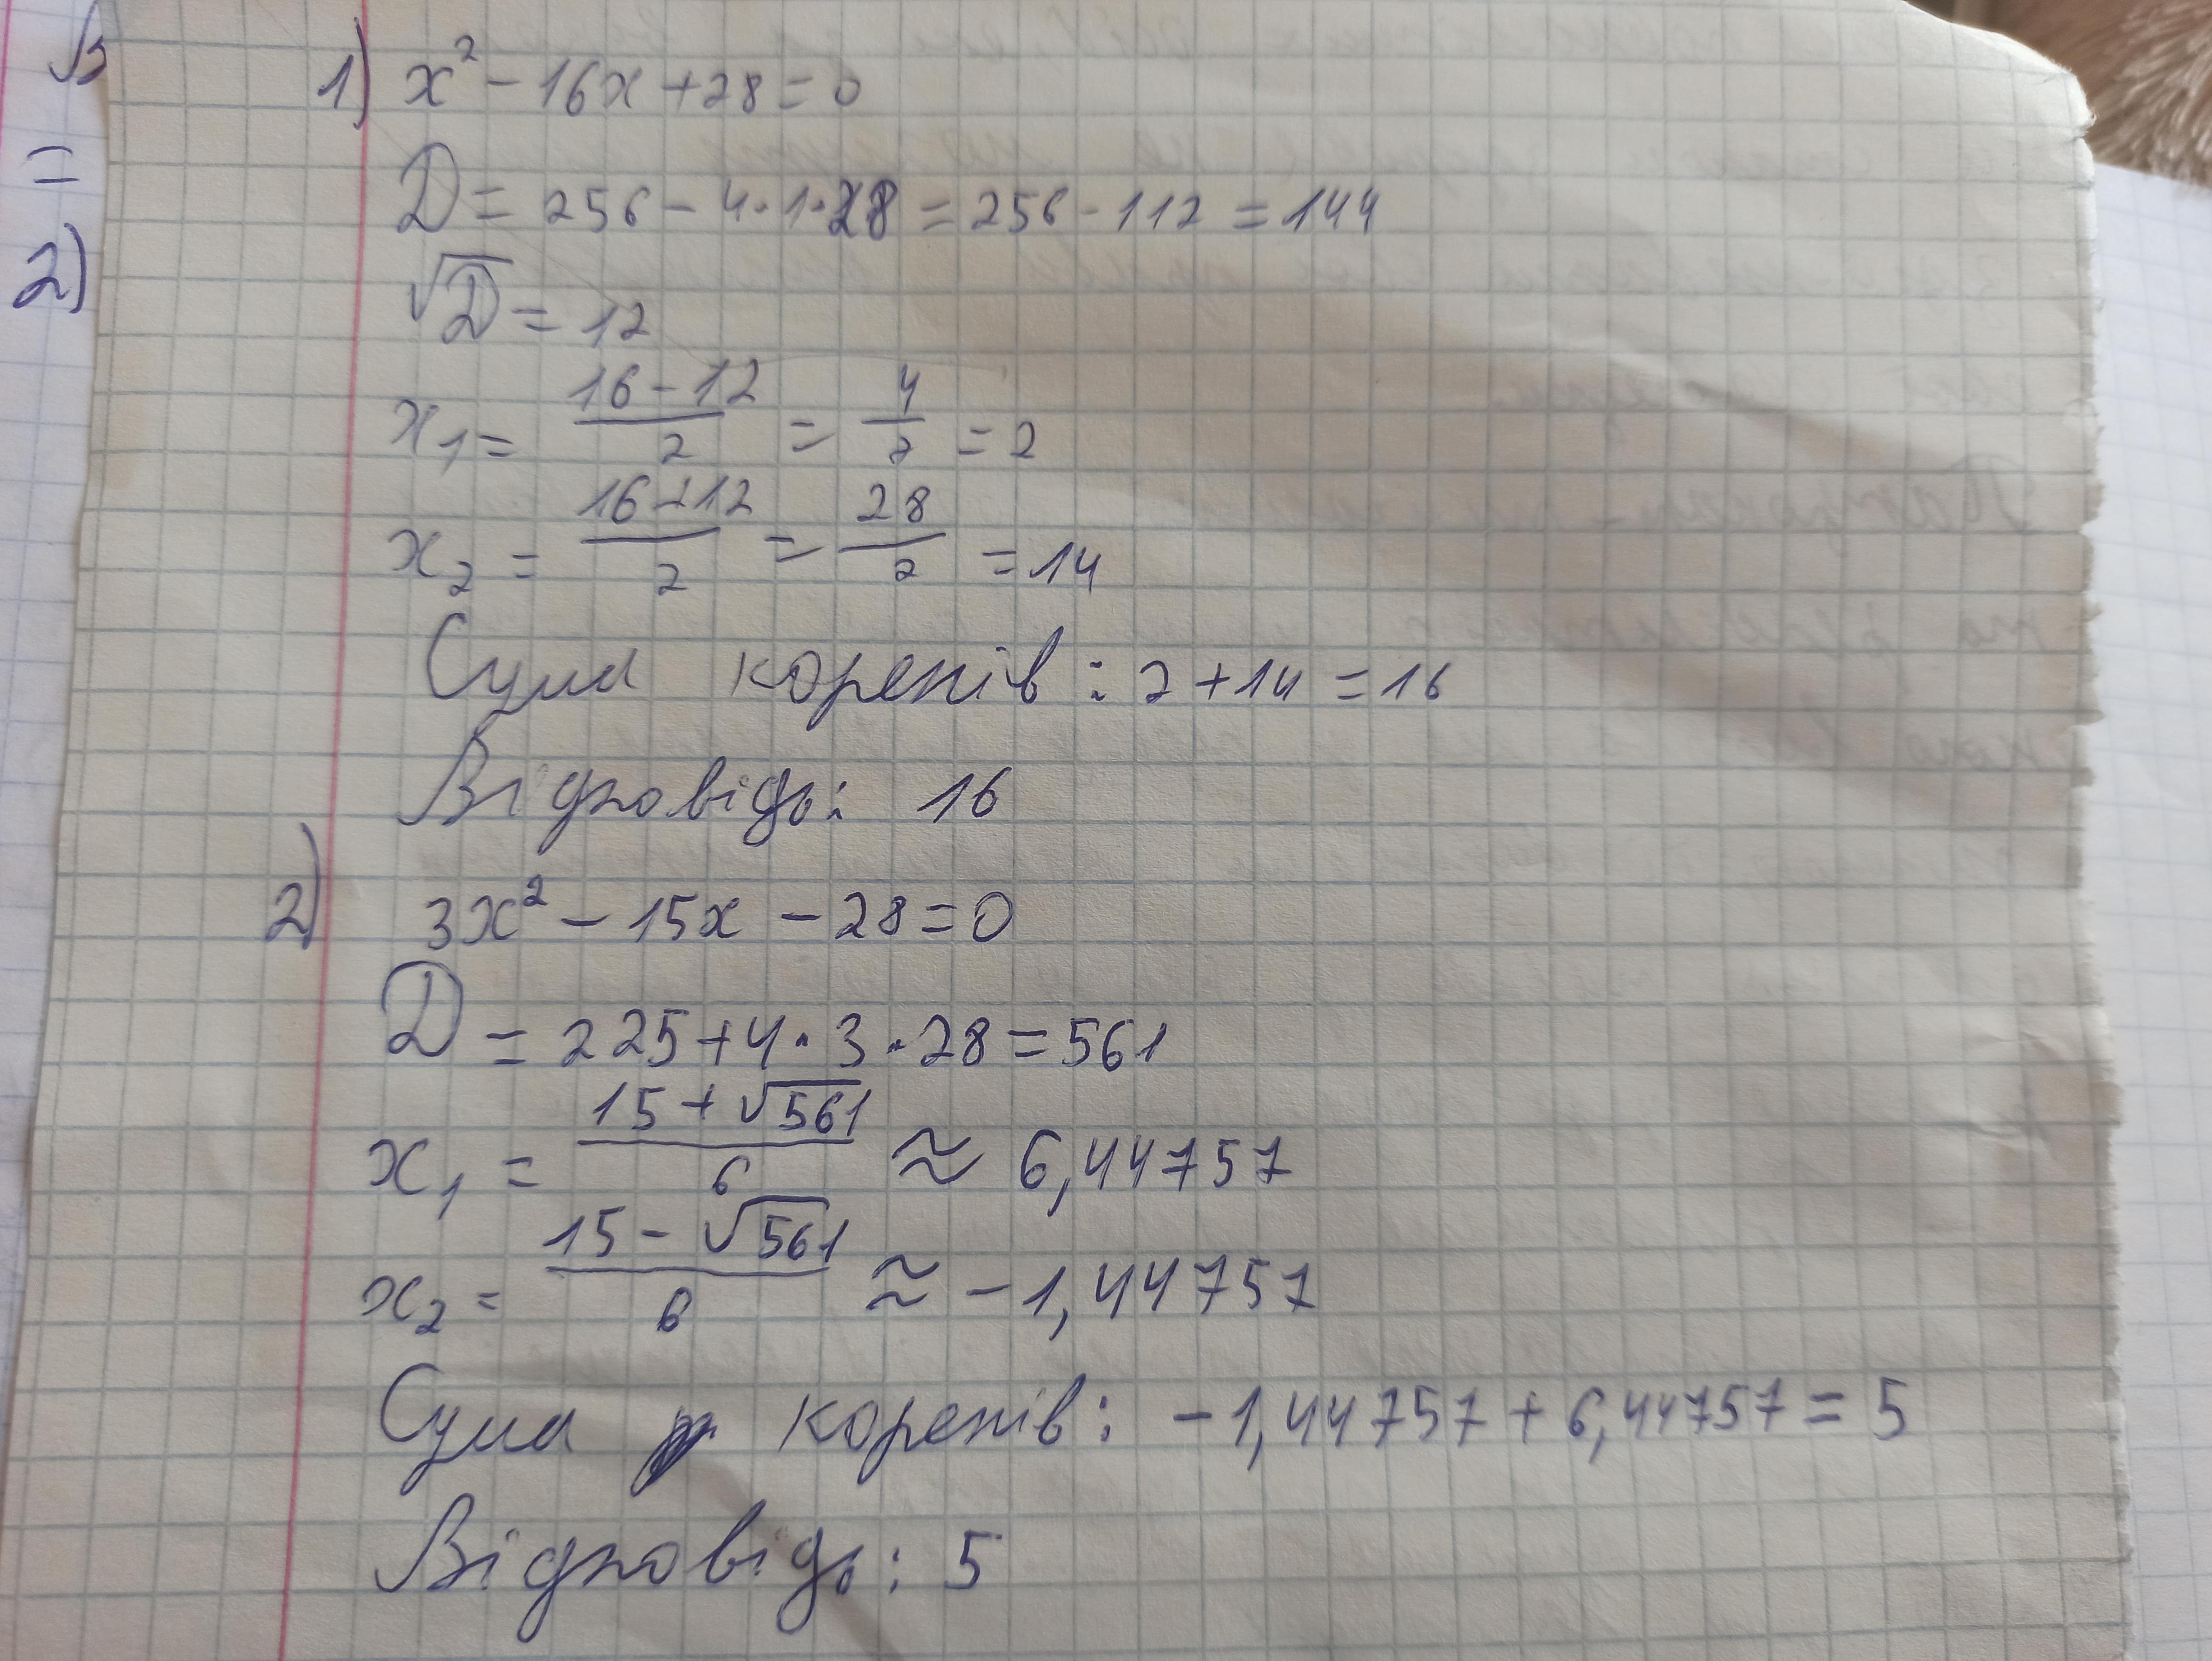 1) x² - 16x + 28 = 0
D = 256 - 4·1·28 = 256 - 112 = 144
√D = 12
x₁ = (16 - 12)/2 = 4/2 = 2
x₂ = (16 + 12)/2 = 28/2 = 14
Сума коренів: 2 + 14 = 16
Відповідь: 16
2) 3x² - 15x - 28 = 0
D = 225 + 4·3·28 = 561
x₁ = (15 + √561)/6 ≈ 6,44757
x₂ = (15 - √561)/6 ≈ -1,44757
Сума коренів: -1,44757 + 6,44757 = 5
Відповідь: 5
=
2)